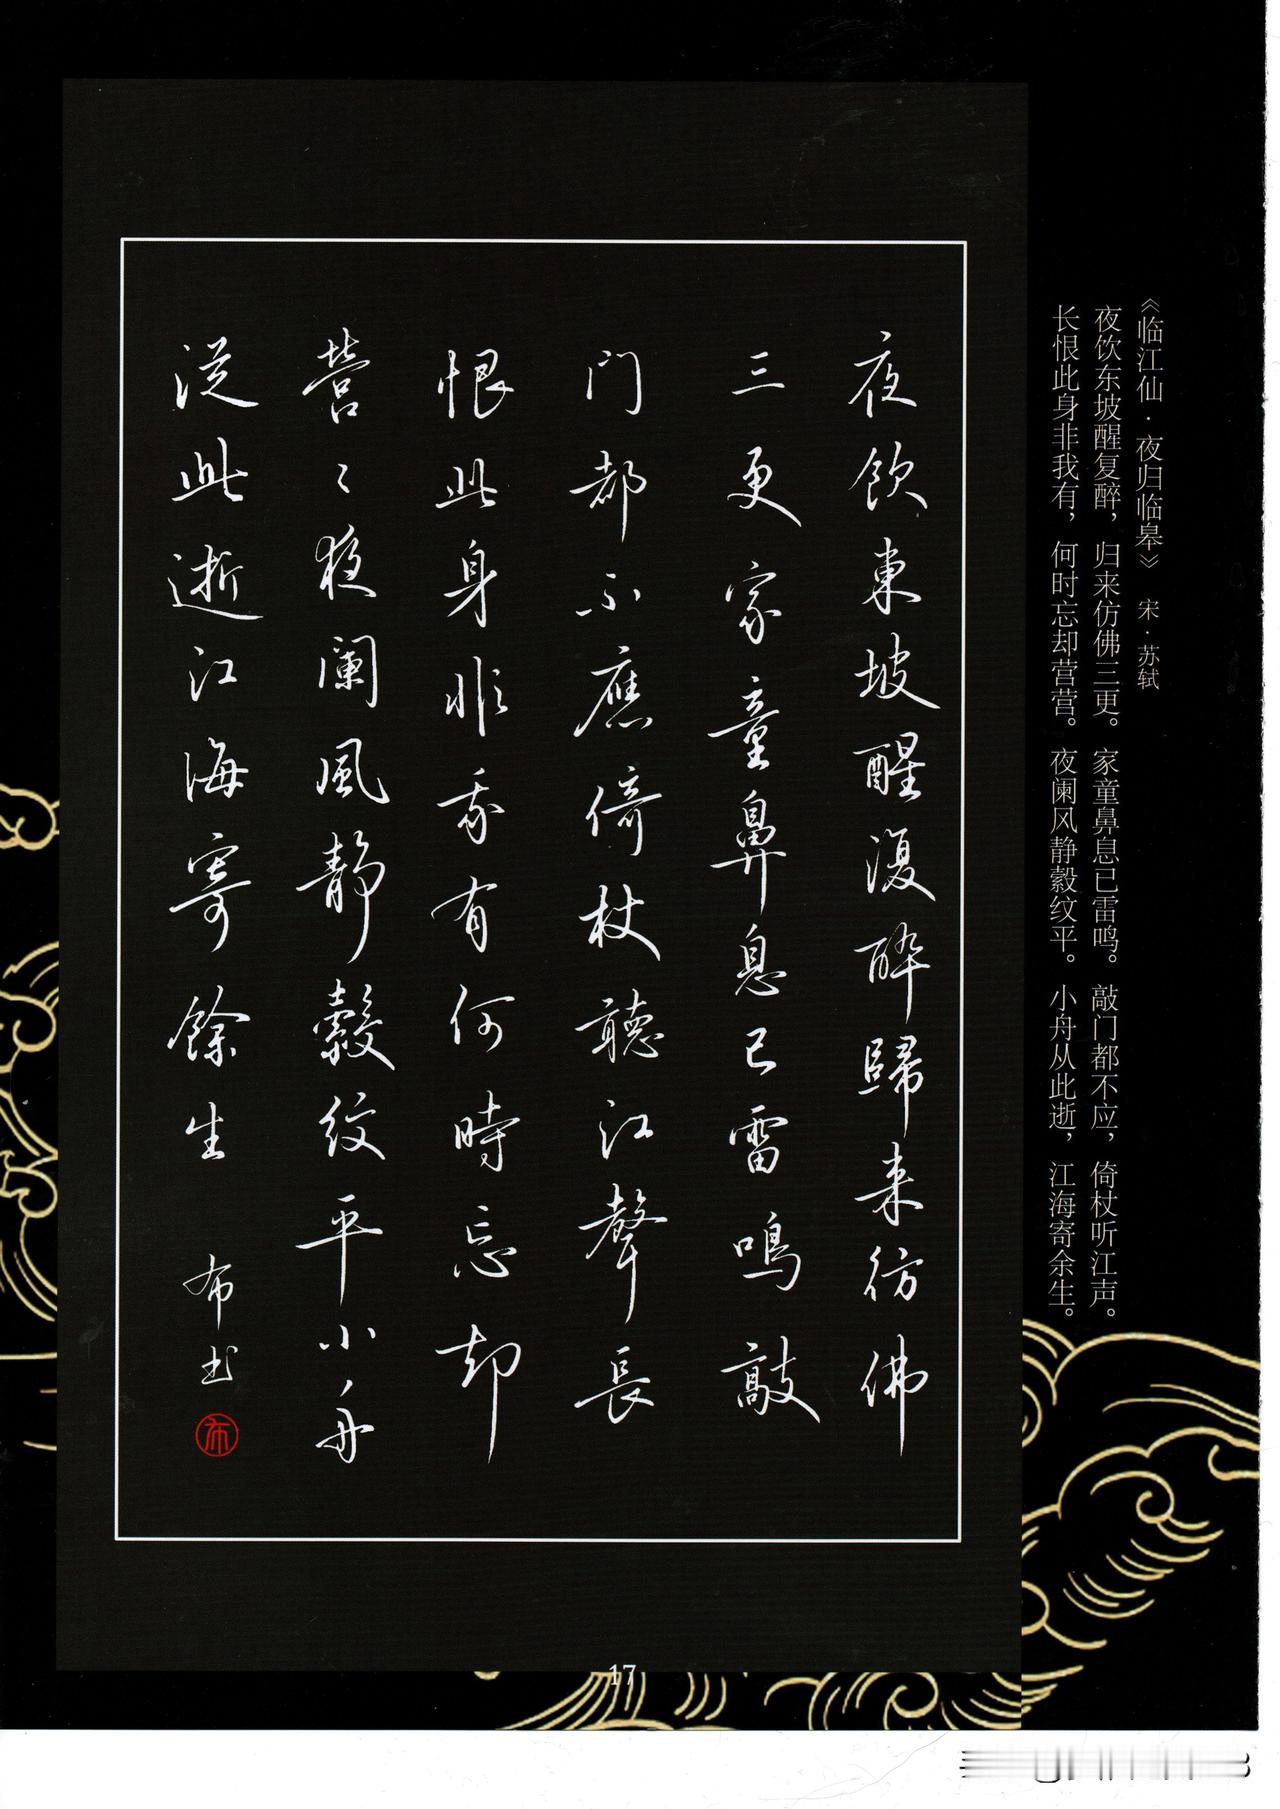 《临江仙·夜归临皋》 宋·苏轼
夜饮东坡醒复醉，归来仿佛三更。家童鼻息已雷鸣。敲门都不应，倚杖听江声。
长恨此身非我有，何时忘却营营。夜阑风静縠纹平。小舟从此逝，江海寄余生。
夜飲東坡醒復醉歸来彷佛
三更家童鼻息已雷鳴敲
门都不應倚杖聽江聲長
恨此身非我有何時忘却
營〻夜阑風静縠纹平小舟
從此逝江海寄餘生 布书
布
17